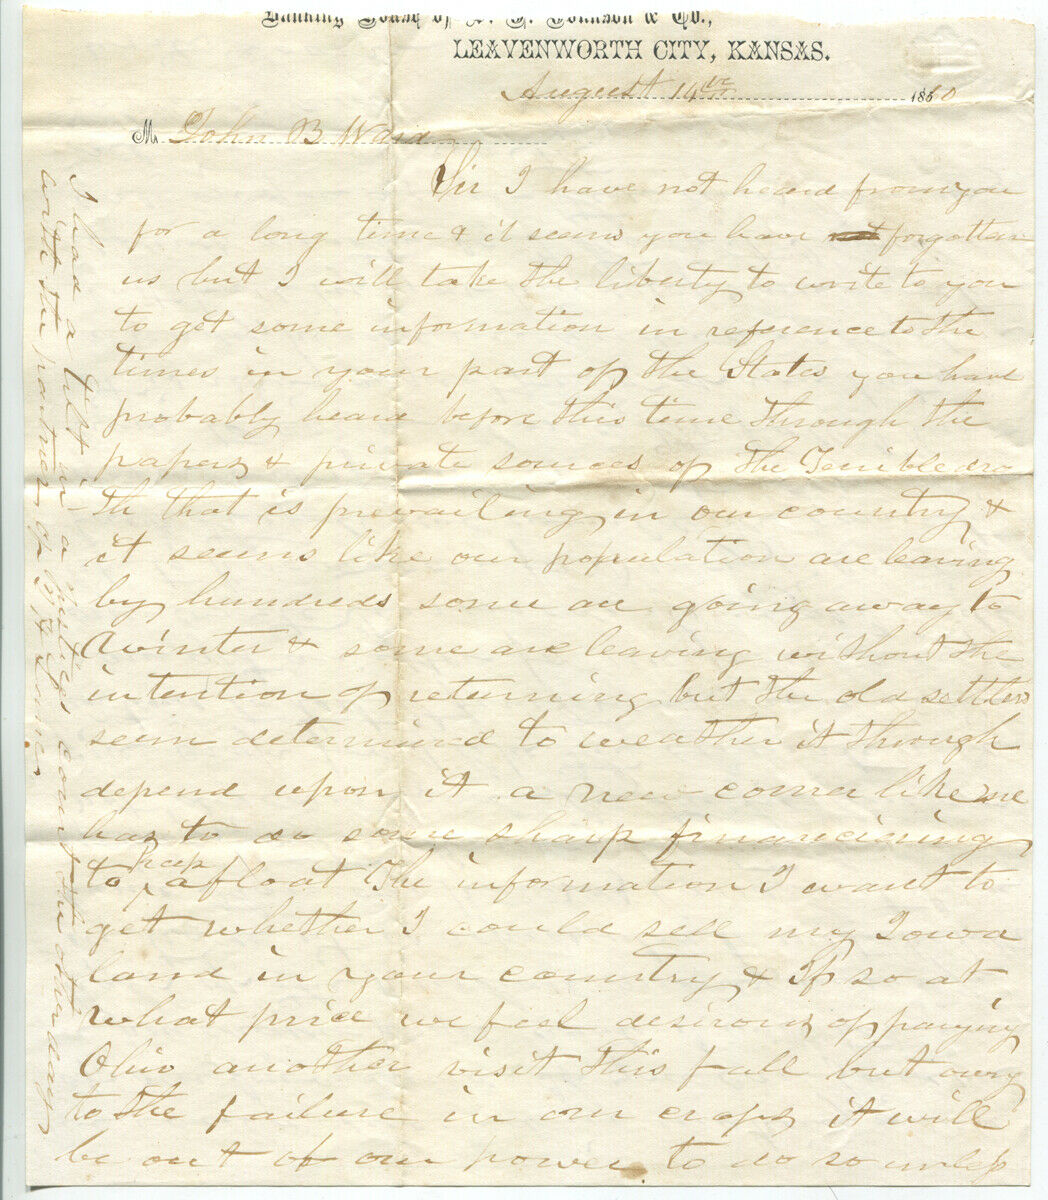 Banking House of A. J. Johnson & Co.,
LEAVENWORTH CITY, KANSAS.
August 14th 1860
M John B Ward
Sir I have not heard from you
for a long time & it seems you have forgotten
us but I will take the liberty to write to you
to get some information in reference to the
times in your part of the States you have
probably heard before this time through the
papers & private sources of the Terrible dro
th that is prevailing in our country &
it seems like our population are leaving
by hundreds some are going away to
winter & some are leaving without the
intention of returning but the old settlers
seem determined to weather it through
depend upon it a new comer like me
has to do some sharp financiering
to keep afloat The information I want to
get whether I could sell my Iowa
land in your country & If so at
what price we feel desirous of paying
Ohio another visit this fall but owing
to the failure in our crops it will
be out of our power to do so unless
I had a tilt in a justices court the other day
with the partner of